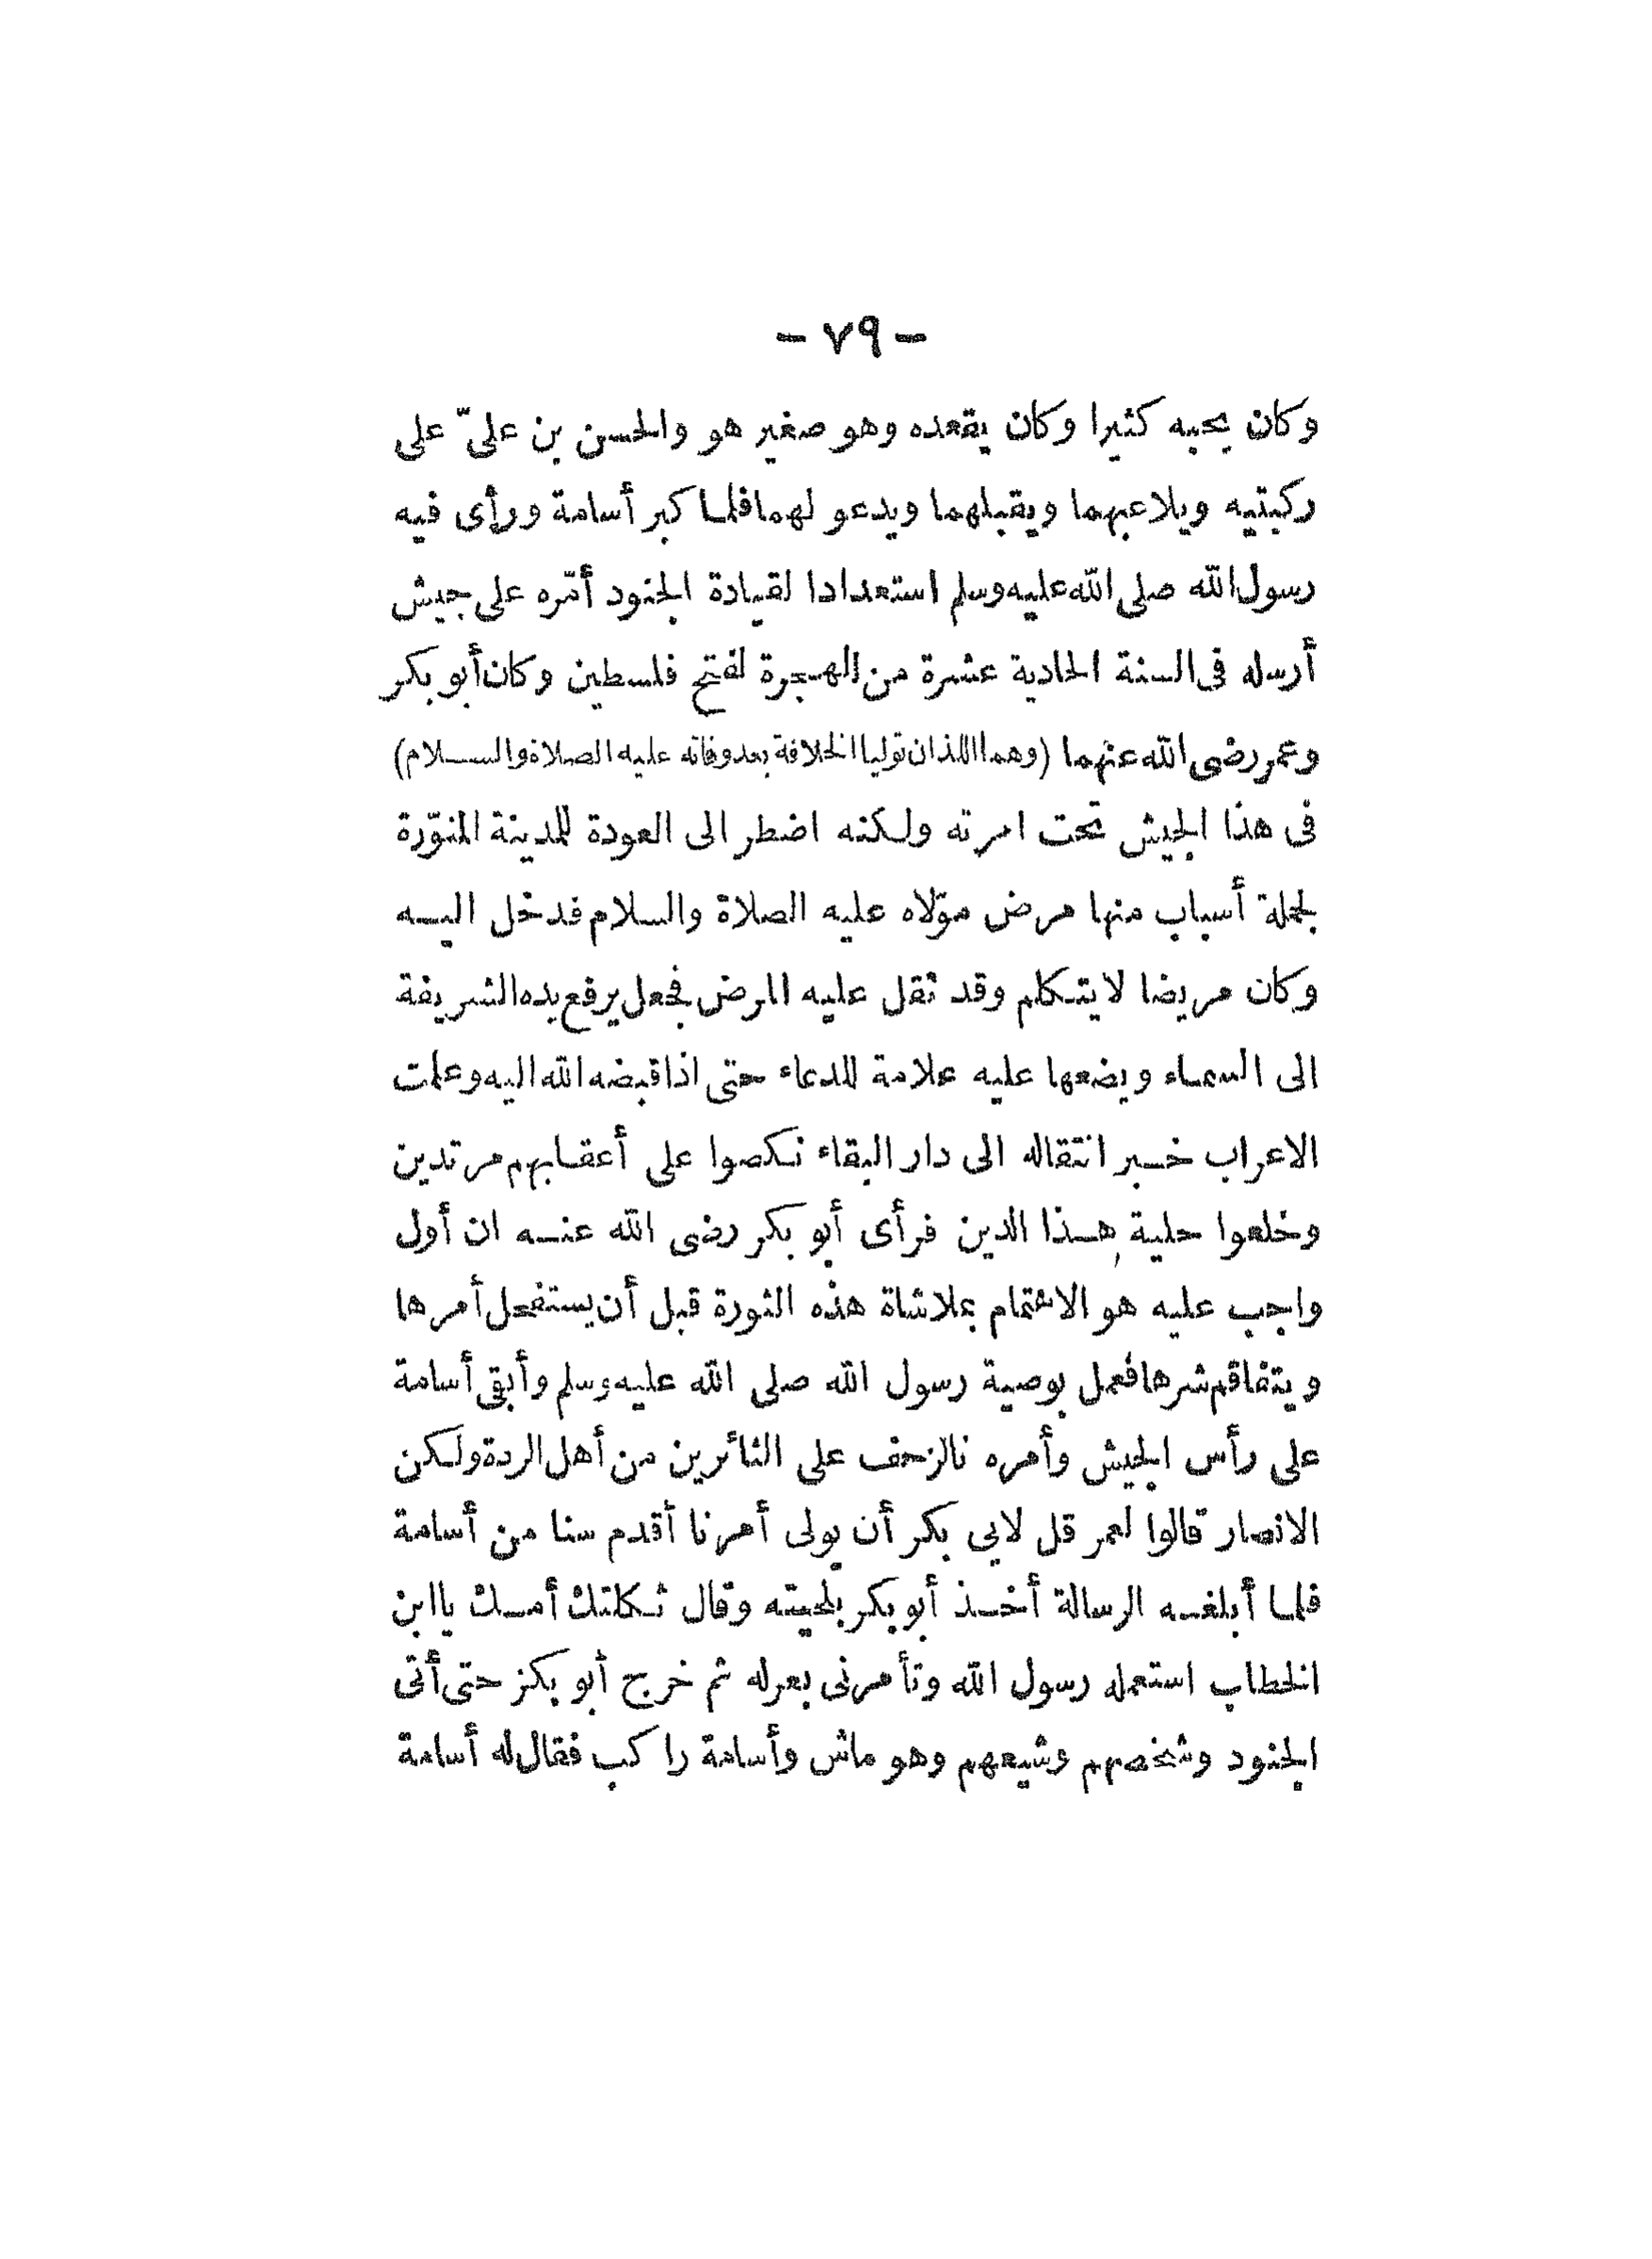 - ٧٩ -
وكان يحبه كثيرا وكان يقعده وهو صغير هو والحسن بن علىّ على
ركبتيه ويلاعبهما ويقبلهما ويدعو لهما فلما كبر أسامة ورأى فيه
رسول الله صلى الله عليه وسلم استعدادا لقيادة الجنود أمّره على جيش
أرسله فى السنة الحادية عشرة من الهجرة لفتح فلسطين وكان أبو بكر
وعمر رضى الله عنهما (وهما اللذان توليا الخلافة بعد وفاته عليه الصلاة والسلام)
فى هذا الجيش تحت امرته ولكنه اضطر الى العودة للمدينة المنوّرة
لجملة أسباب منها مرض مولاه عليه الصلاة والسلام فدخل اليه
وكان مريضا لا يتكلم وقد ثقل عليه المرض فجعل يرفع يده الشريفة
الى السماء ويضعها عليه علامة للدعاء حتى اذا قبضه الله اليه وعلمت
الاعراب خبر انتقاله الى دار البقاء نكصوا على أعقابهم مرتدين
وخلعوا حلية هذا الدين فرأى أبو بكر رضى الله عنه ان أول
واجب عليه هو الاهتمام بملاشاة هذه الثورة قبل أن يستفحل أمرها
ويتفاقم شرها فعمل بوصية رسول الله صلى الله عليه وسلم وأبقى أسامة
على رأس الجيش وأمره بالزحف على الثائرين من أهل الردة ولكن
الانصار قالوا لعمر قل لابى بكر أن يولى أمرنا أقدم سنا من أسامة
فلما أبلغه الرسالة أخذ أبو بكر بلحيته وقال ثكلتك أمك يا ابن
الخطاب استعمله رسول الله وتأمرنى بعزله ثم خرج أبو بكر حتى أتى
الجنود وشخصهم وشيعهم وهو ماش وأسامة راكب فقال له أسامة